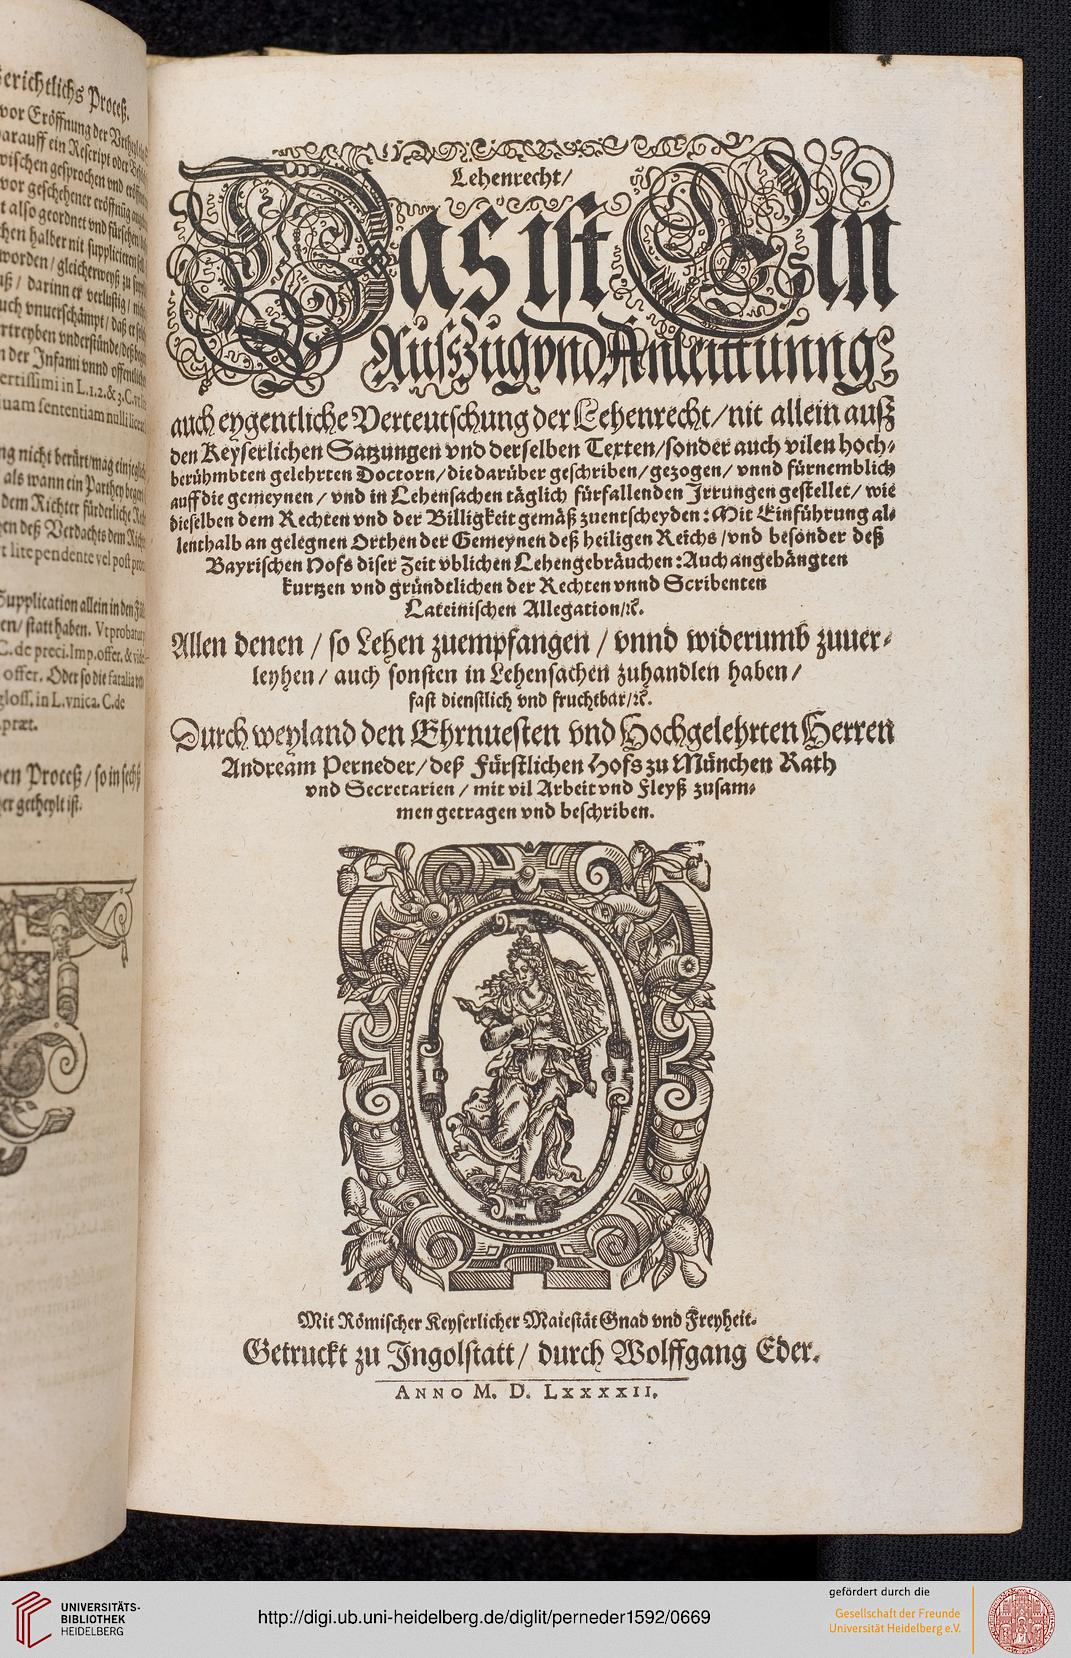 Gerichtlichs Proceß.
vor Eröffnung der
darauff ein Rescript oder
wischen gesprochen vnd
vor geschehener eröffnüg
t also geordnet vnd
chen halber nit supplicieren
worden / gleicherweyß zu
/ darinn er verlustig /
uch vnuerschämpt / daß er
rtreyben vnderstünde /
n der Infami vnnd offentlich
ertissimi in L.1.2.& 3.C.
uam sententiam nulli
ng nicht berürt / mag ein
als wann ein Parthey
dem Richter fürderliche
en deß Verdachts dem
t lite pendente vel post
Supplication allein in den
en / statt haben. Vt
C. de preci. Imp. offer. &
offer. Oder so die fatalia
gloss. in L. vnica. C. de
præt.
en Proceß / so in sechs
er getheylt ist.
Lehenrecht /
Das ist Ein
Ausszug vnd Anleittunng
auch eygentliche Verteutschung der Lehenrecht / nit allein auß
den Keyserlichen Satzungen vnd derselben Texten / sonder auch vilen hoch-
berühmbten gelehrten Doctorn / die darüber geschriben / gezogen / vnnd fürnemblich
auff die gemeynen / vnd in Lehensachen täglich fürfallenden Irrungen gestellet / wie
dieselben dem Rechten vnd der Billigkeit gemäß zuentscheyden: Mit Einführung al-
lenthalb an gelegnen Orthen der Gemeynen deß heiligen Reichs / vnd besonder deß
Bayrischen Hofs diser Zeit vblichen Lehengebräuchen: Auch angehängten
kurtzen vnd gründtlichen der Rechten vnnd Scribenten
Lateinischen Allegation / ꝛc.
Allen denen / so Lehen zuempfangen / vnnd widerumb zuuer-
leyhen / auch sonsten in Lehensachen zuhandlen haben /
fast dienstlich vnd fruchtbar / ꝛc.
Durch weyland den Ehrnuesten vnd Hochgelehrten Herren
Andream Perneder / deß Fürstlichen Hofs zu München Rath
vnd Secretarien / mit vil Arbeit vnd Fleyß zusam-
men getragen vnd beschriben.
Mit Römischer Keyserlicher Maiestät Gnad vnd Freyheit.
Getruckt zu Ingolstatt / durch Wolffgang Eder.
ANNO M. D. LXXXXII.
UNIVERSITÄTS-
BIBLIOTHEK
HEIDELBERG
http://digi.ub.uni-heidelberg.de/diglit/perneder1592/0669
gefördert durch die
Gesellschaft der Freunde
Universität Heidelberg e.V.